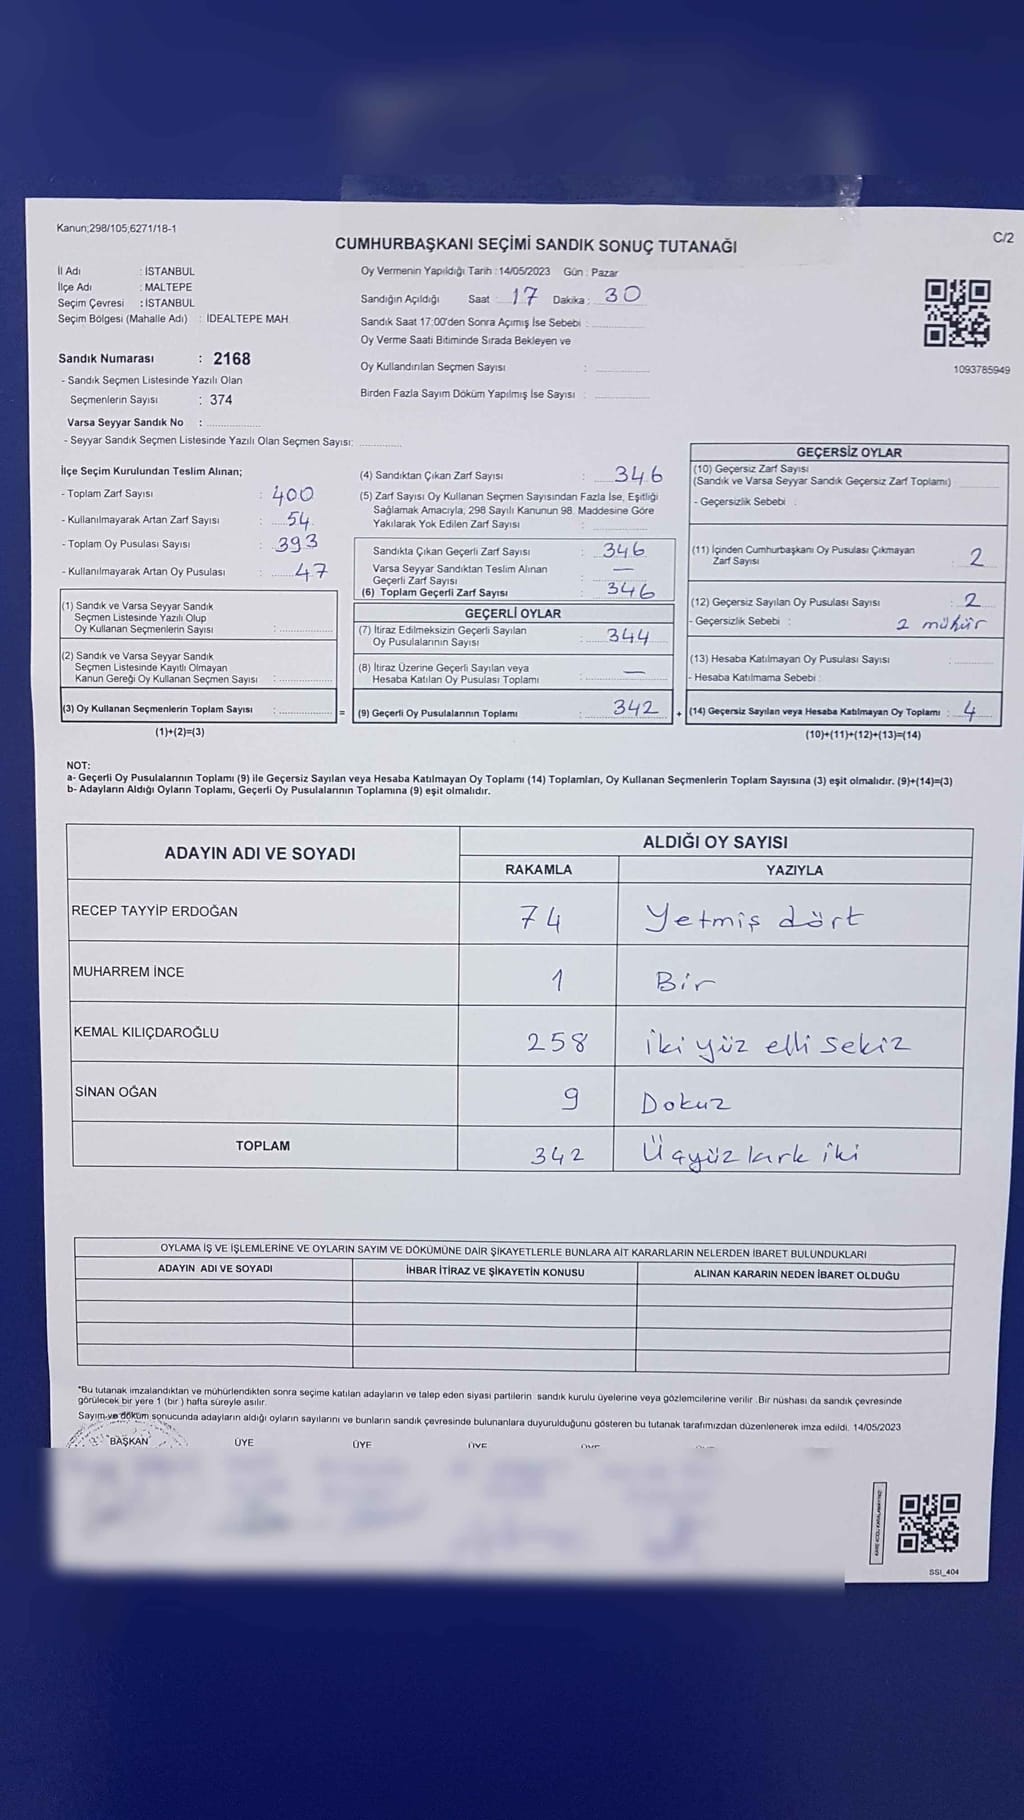 Kanun;298/105,6271/18-1
C/2
CUMHURBAŞKANI SEÇİMİ SANDIK SONUÇ TUTANAĞI
İl Adı : İSTANBUL
İlçe Adı : MALTEPE
Seçim Çevresi : İSTANBUL
Seçim Bölgesi (Mahalle Adı) : İDEALTEPE MAH.
Oy Vermenin Yapıldığı Tarih : 14/05/2023 Gün : Pazar
Sandığın Açıldığı Saat 17 Dakika : 30
Sandık Saat 17:00'den Sonra Açımış İse Sebebi :
Oy Verme Saati Bitiminde Sırada Bekleyen ve
Oy Kullandırılan Seçmen Sayısı :
Birden Fazla Sayım Döküm Yapılmış İse Sayısı :
1093785949
Sandık Numarası : 2168
- Sandık Seçmen Listesinde Yazılı Olan
Seçmenlerin Sayısı : 374
Varsa Seyyar Sandık No :
- Seyyar Sandık Seçmen Listesinde Yazılı Olan Seçmen Sayısı:
İlçe Seçim Kurulundan Teslim Alınan;
- Toplam Zarf Sayısı : 400
- Kullanılmayarak Artan Zarf Sayısı : 54
- Toplam Oy Pusulası Sayısı : 393
- Kullanılmayarak Artan Oy Pusulası : 47
(1) Sandık ve Varsa Seyyar Sandık
Seçmen Listesinde Yazılı Olup
Oy Kullanan Seçmenlerin Sayısı :
(2) Sandık ve Varsa Seyyar Sandık
Seçmen Listesinde Kayıtlı Olmayan
Kanun Gereği Oy Kullanan Seçmen Sayısı :
(3) Oy Kullanan Seçmenlerin Toplam Sayısı :
(1)+(2)=(3)
=
(4) Sandıktan Çıkan Zarf Sayısı : 346
(5) Zarf Sayısı Oy Kullanan Seçmen Sayısından Fazla İse, Eşitliği
Sağlamak Amacıyla; 298 Sayılı Kanunun 98. Maddesine Göre
Yakılarak Yok Edilen Zarf Sayısı :
Sandıkta Çıkan Geçerli Zarf Sayısı : 346
Varsa Seyyar Sandıktan Teslim Alınan
Geçerli Zarf Sayısı : —
(6) Toplam Geçerli Zarf Sayısı : 346
GEÇERLİ OYLAR
(7) İtiraz Edilmeksizin Geçerli Sayılan
Oy Pusulalarının Sayısı : 344
(8) İtiraz Üzerine Geçerli Sayılan veya
Hesaba Katılan Oy Pusulası Toplamı : —
(9) Geçerli Oy Pusulalarının Toplamı : 342
+
GEÇERSİZ OYLAR
(10) Geçersiz Zarf Sayısı
(Sandık ve Varsa Seyyar Sandık Geçersiz Zarf Toplamı)
- Geçersizlik Sebebi :
(11) İçinden Cumhurbaşkanı Oy Pusulası Çıkmayan
Zarf Sayısı : 2
(12) Geçersiz Sayılan Oy Pusulası Sayısı : 2
- Geçersizlik Sebebi : 2 mühür
(13) Hesaba Katılmayan Oy Pusulası Sayısı :
- Hesaba Katılmama Sebebi :
(14) Geçersiz Sayılan veya Hesaba Katılmayan Oy Toplamı : 4
(10)+(11)+(12)+(13)=(14)
NOT:
a- Geçerli Oy Pusulalarının Toplamı (9) ile Geçersiz Sayılan veya Hesaba Katılmayan Oy Toplamı (14) Toplamları, Oy Kullanan Seçmenlerin Toplam Sayısına (3) eşit olmalıdır. (9)+(14)=(3)
b- Adayların Aldığı Oyların Toplamı, Geçerli Oy Pusulalarının Toplamına (9) eşit olmalıdır.
ADAYIN ADI VE SOYADI
ALDIĞI OY SAYISI
RAKAMLA YAZIYLA
RECEP TAYYİP ERDOĞAN 74 Yetmiş dört
MUHARREM İNCE 1 Bir
KEMAL KILIÇDAROĞLU 258 iki yüz elli sekiz
SİNAN OĞAN 9 Dokuz
TOPLAM 342 Üçyüz kırk iki
OYLAMA İŞ VE İŞLEMLERİNE VE OYLARIN SAYIM VE DÖKÜMÜNE DAİR ŞİKAYETLERLE BUNLARA AİT KARARLARIN NELERDEN İBARET BULUNDUKLARI
ADAYIN ADI VE SOYADI İHBAR İTİRAZ VE ŞİKAYETİN KONUSU ALINAN KARARIN NEDEN İBARET OLDUĞU
*Bu tutanak imzalandıktan ve mühürlendikten sonra seçime katılan adayların ve talep eden siyasi partilerin sandık kurulu üyelerine veya gözlemcilerine verilir .Bir nüshası da sandık çevresinde
görülecek bir yere 1 (bir ) hafta süreyle asılır.
Sayım ve döküm sonucunda adayların aldığı oyların sayılarını ve bunların sandık çevresinde bulunanlara duyurulduğunu gösteren bu tutanak tarafımızdan düzenlenerek imza edildi. 14/05/2023
BAŞKAN ÜYE ÜYE ÜYE ÜYE
SSI_404